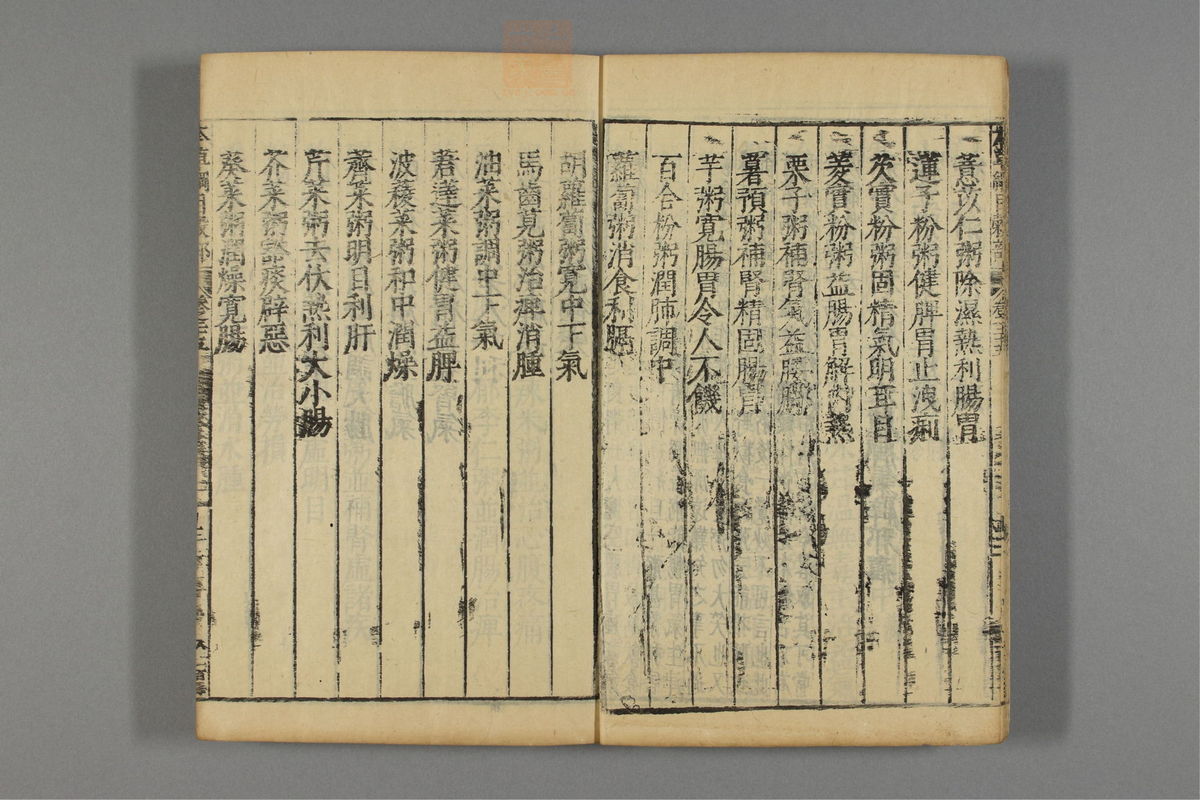 薏苡仁粥除濕熱利腸胃
蓮子粉粥健脾胃止洩痢
芡實粉粥固精氣明耳目
菱實粉粥益腸胃解內熱
栗子粥補腎氣益腰脚
薯預粥補腎精固腸胃
芋粥寬腸胃令人不饑
百合粉粥潤肺調中
蘿蔔粥消食利膈
胡蘿蔔粥寬中下氣
馬齒莧粥治痺消腫
油菜粥調中下氣
莙薘菜粥健胃益脾
波薐菜粥和中潤燥
薺菜粥明目利肝
芹菜粥去伏熱利大小腸
芥菜粥豁痰辟惡
葵菜粥潤燥寬腸
本草綱目穀部